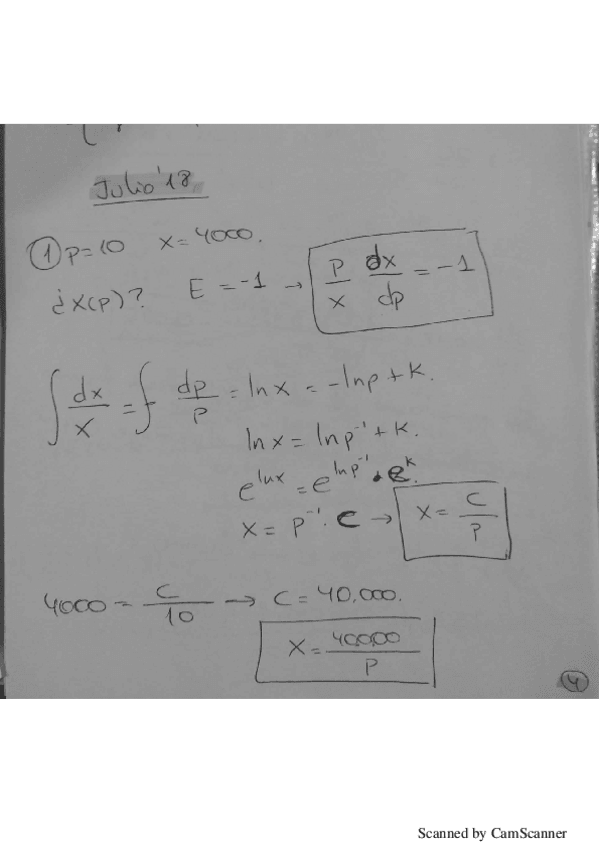 Julio'18
① p=10 x=4000.
¿x(p)? E = -1 → p/x dx/dp = -1
∫ dx/x = ∫- dp/p = ln x = -ln p + k.
ln x = ln p⁻¹ + k.
e^ln x = e^ln p⁻¹ · e^k.
x = p⁻¹ · c → x = c/p
4000 = c/10 → c = 40,000.
x = 40000/p
4
Scanned by CamScanner